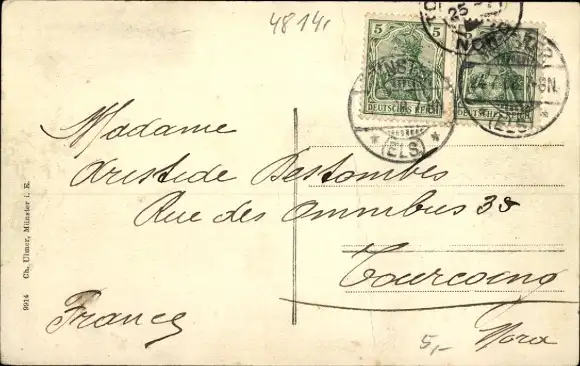 4814,
5 5
DEUTSCHES REICH
DEUTSCHES REICH
25
NORD
(ELS)
(ELS)
Madame
Aristide Destombes
Rue des Omnibus 38
Tourcoing
Nord
France
5,-
9914 Ch. Ulmer, Münster i. E.